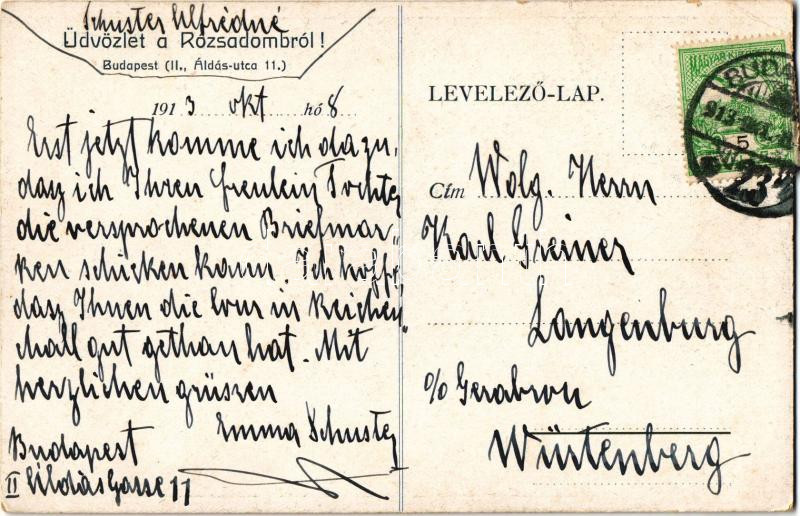 Schuster Alfrédné
Üdvözlet a Rózsadombról!
Budapest (II., Áldás-utca 11.)
1913 okt hó 8
Erst jetzt komme ich dazu,
dasz ich Ihren freulein Tochter
die versprochenen Briefmar„
ken schicken kann. Ich hoffe
dasz Ihnen die Cur in Reichen„
hall gut gethan hat. Mit
herzlichen grüszen
Emma Schuster
Budapest
II Áldás Gasse 11
LEVELEZŐ-LAP.
Cím Wolg. Herrn
Karl Greiner
Langenburg
c/o Gerabron
Würtenberg
MAGYAR KIR
5
BUDA
913
23